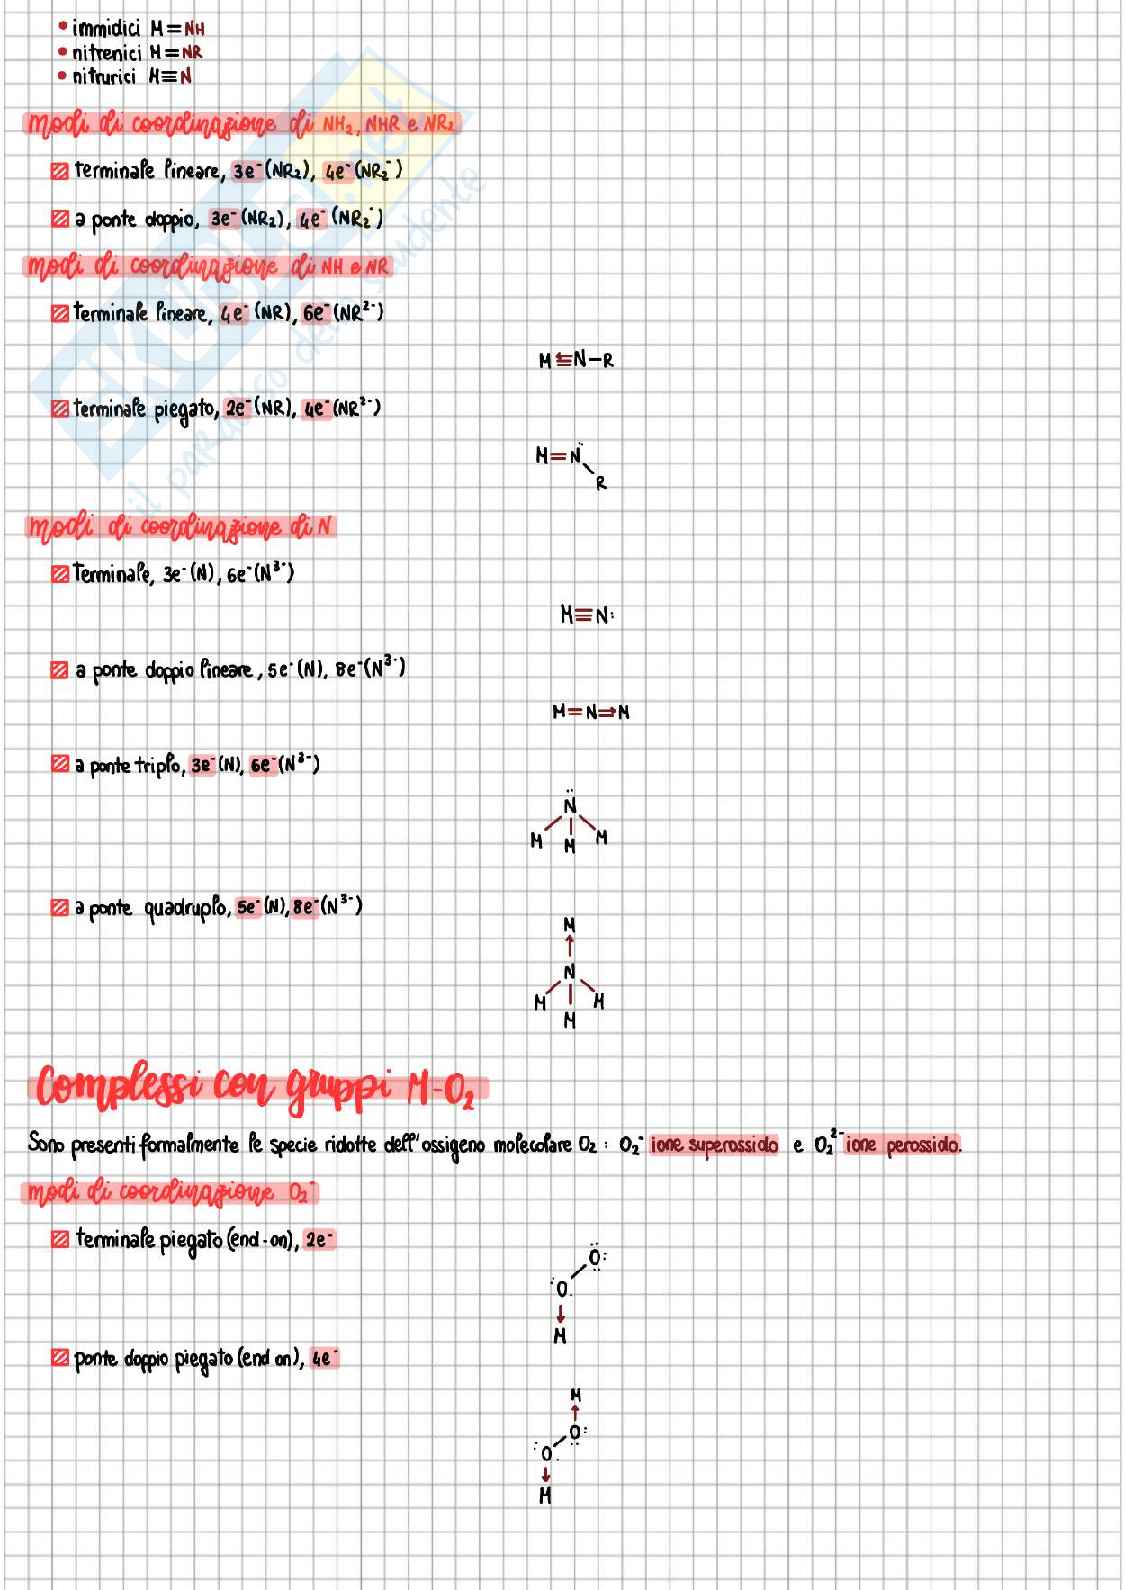 • immidici M=NH
• nitrenici M=NR
• nitrurici M≡N
modi di coordinazione di NH₂, NHR e NR₂
terminale lineare, 3e⁻(NR₂), 4e⁻(NR₂⁻)
a ponte doppio, 3e⁻(NR₂), 4e⁻(NR₂⁻)
modi di coordinazione di NH e NR
terminale lineare, 4e⁻(NR), 6e⁻(NR²⁻)
M⇇N-R
terminale piegato, 2e⁻(NR), 4e⁻(NR²⁻)
M=N̈
R
modi di coordinazione di N
terminale, 3e⁻(N), 6e⁻(N³⁻)
M≡N:
a ponte doppio lineare, 5e⁻(N), 8e⁻(N³⁻)
M=N⇒M
a ponte triplo, 3e⁻(N), 6e⁻(N³⁻)
N̈
M M M
a ponte quadruplo, 5e⁻(N), 8e⁻(N³⁻)
M
↑
N
M M
M
Complessi con gruppi M-O₂
Sono presenti formalmente le specie ridotte dell'ossigeno molecolare O₂ : O₂⁻ ione superossido e O₂²⁻ ione perossido.
modi di coordinazione O₂⁻
terminale piegato (end-on), 2e⁻
O
O
↓
M
ponte doppio piegato (end on), 4e⁻
M
↑
O
O
↓
M
SKUOLA.net
il paradiso dello studente